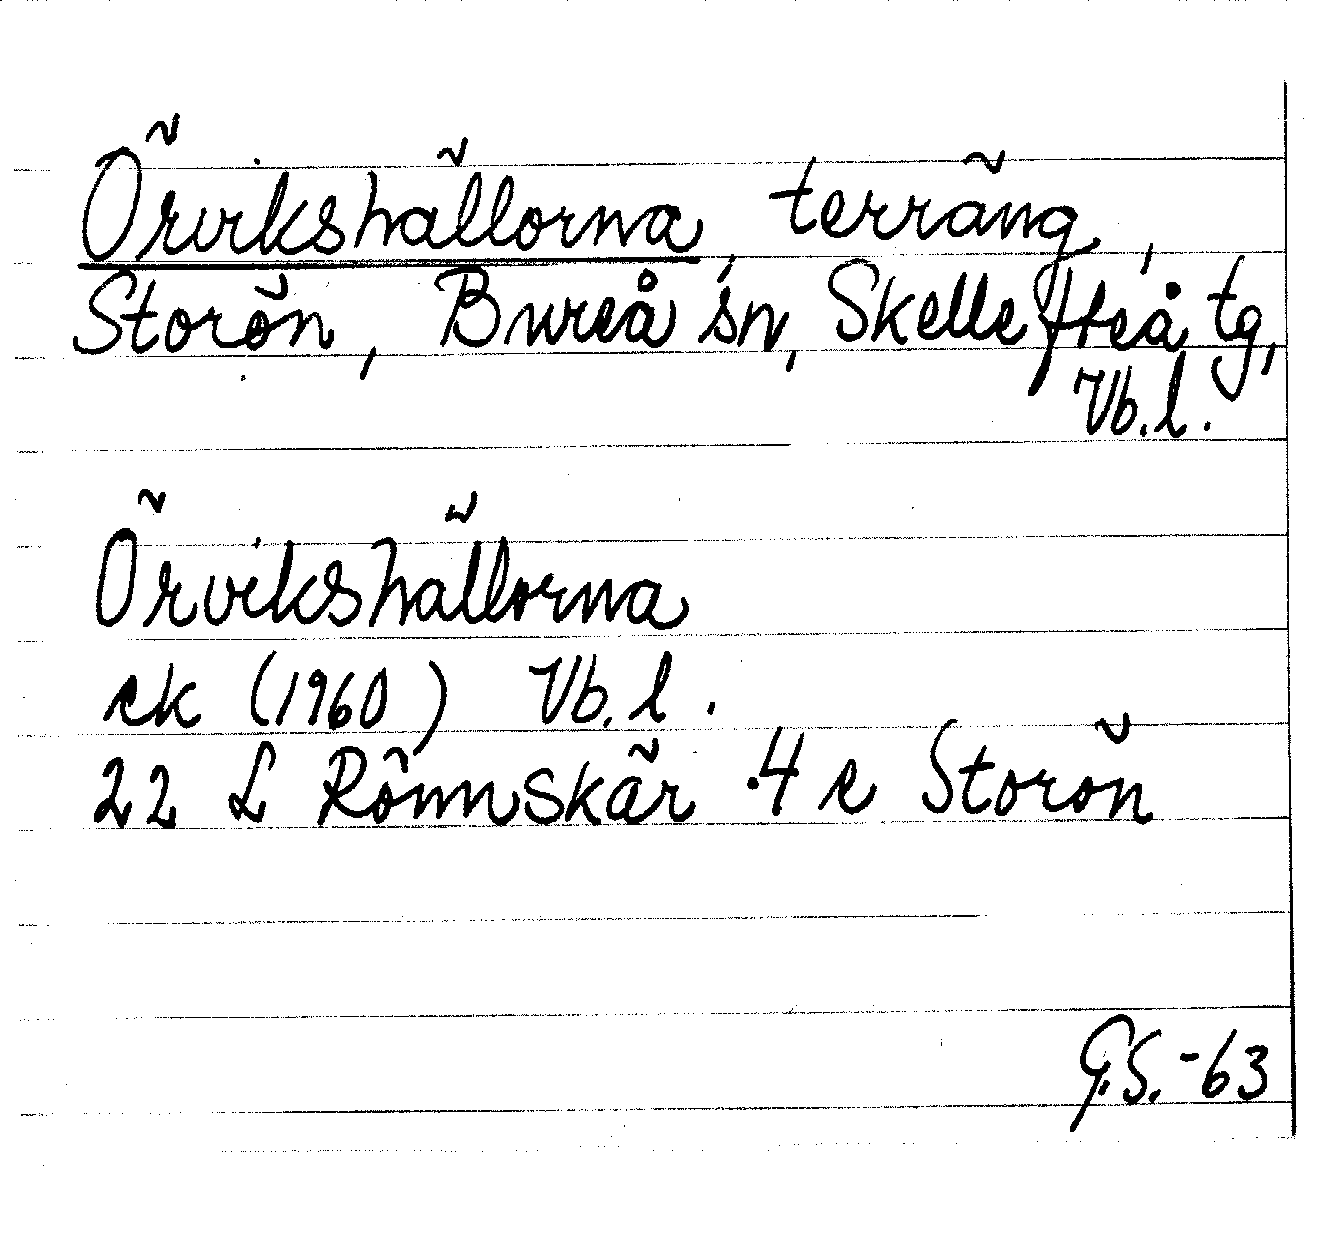 Örvikshällorna, terräng,
Storön, Bureå sn, Skellefteå tg,
Vb. l.
Örvikshällorna
ek (1960) Vb. l.
22 L Rönnskär 4 e Storön
G.S.-63